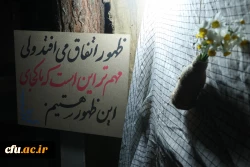 ظهور اتفاق می افتد ولی
مهم تر این است که ما کجای
این ظهور هستیم
cfu.ac.ir